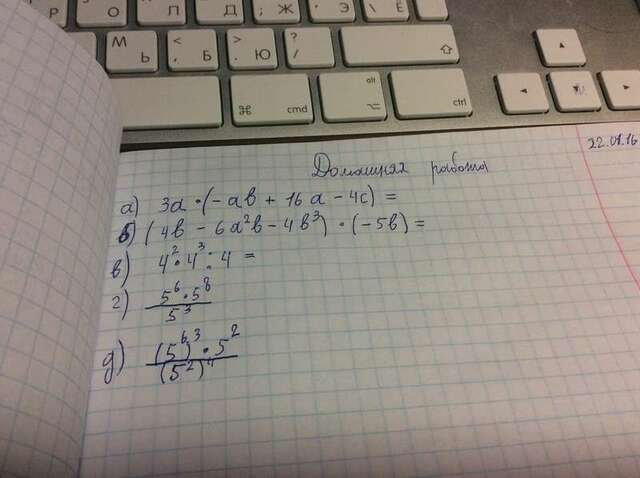 Р О Л Д Ж Э Ё
М Ь < , Б > . Ю ? /
⌘ cmd alt ⌥ ctrl
22.01.16
Домашняя работа
а) 3a · (-ab + 16a - 4c) =
б) (4b - 6a²b - 4b³) · (-5b) =
в) 4² · 4³ : 4 =
г) 5⁶ · 5⁸ / 5³
д) (5⁶)³ · 5² / (5²)⁴